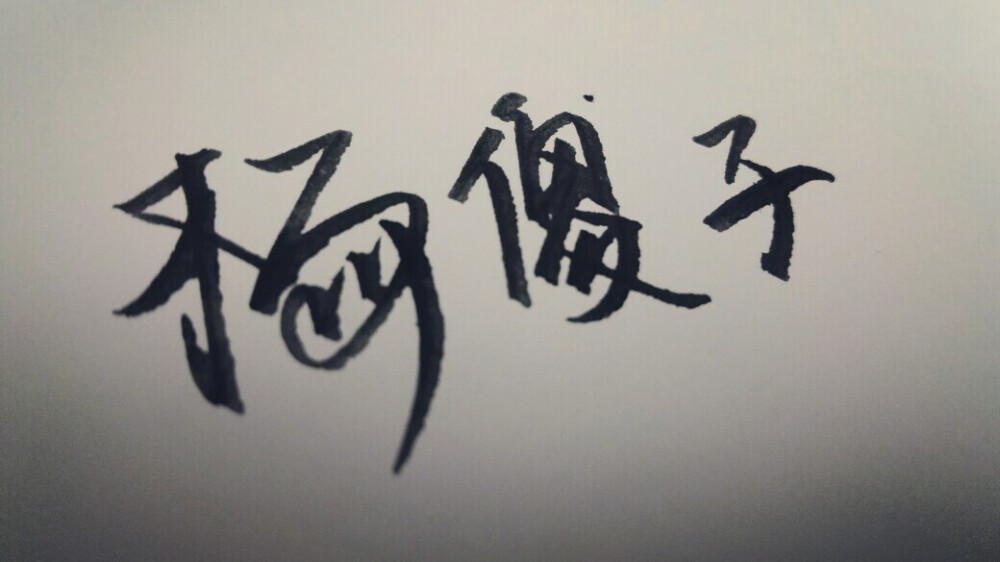 杨傻子